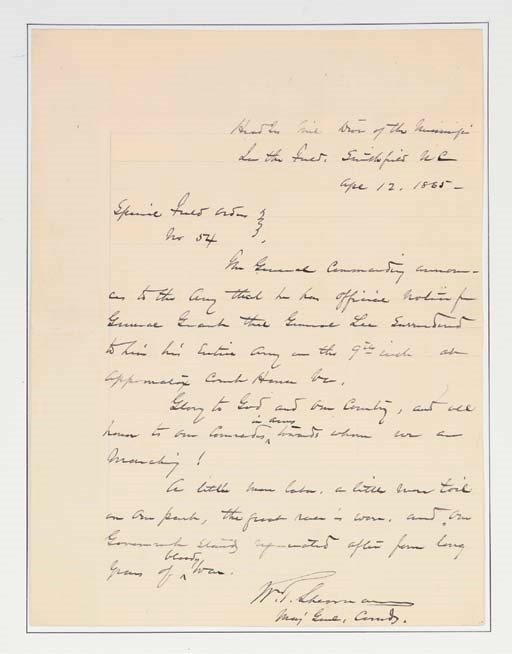 Head Qrs Mil Divn of the Mississippi
In the Field, Smithfield N C
Apl 12. 1865 -
Special Field Orders
No 54
The General Commanding announ-
ces to the Army that he has official notice from
General Grant that General Lee Surrendered
to him his Entire Army on the 9th inst at
Appomattox Court House Va.
Glory to God and our Country, and all
honor to our Comrades in arms towards whom we are
Marching!
A little more labor. a little more toil
on our part, the great race is won. and our
Government stands regenerated after four long
years of bloody War.
W. T. Sherman
Maj Genl, Comdg.